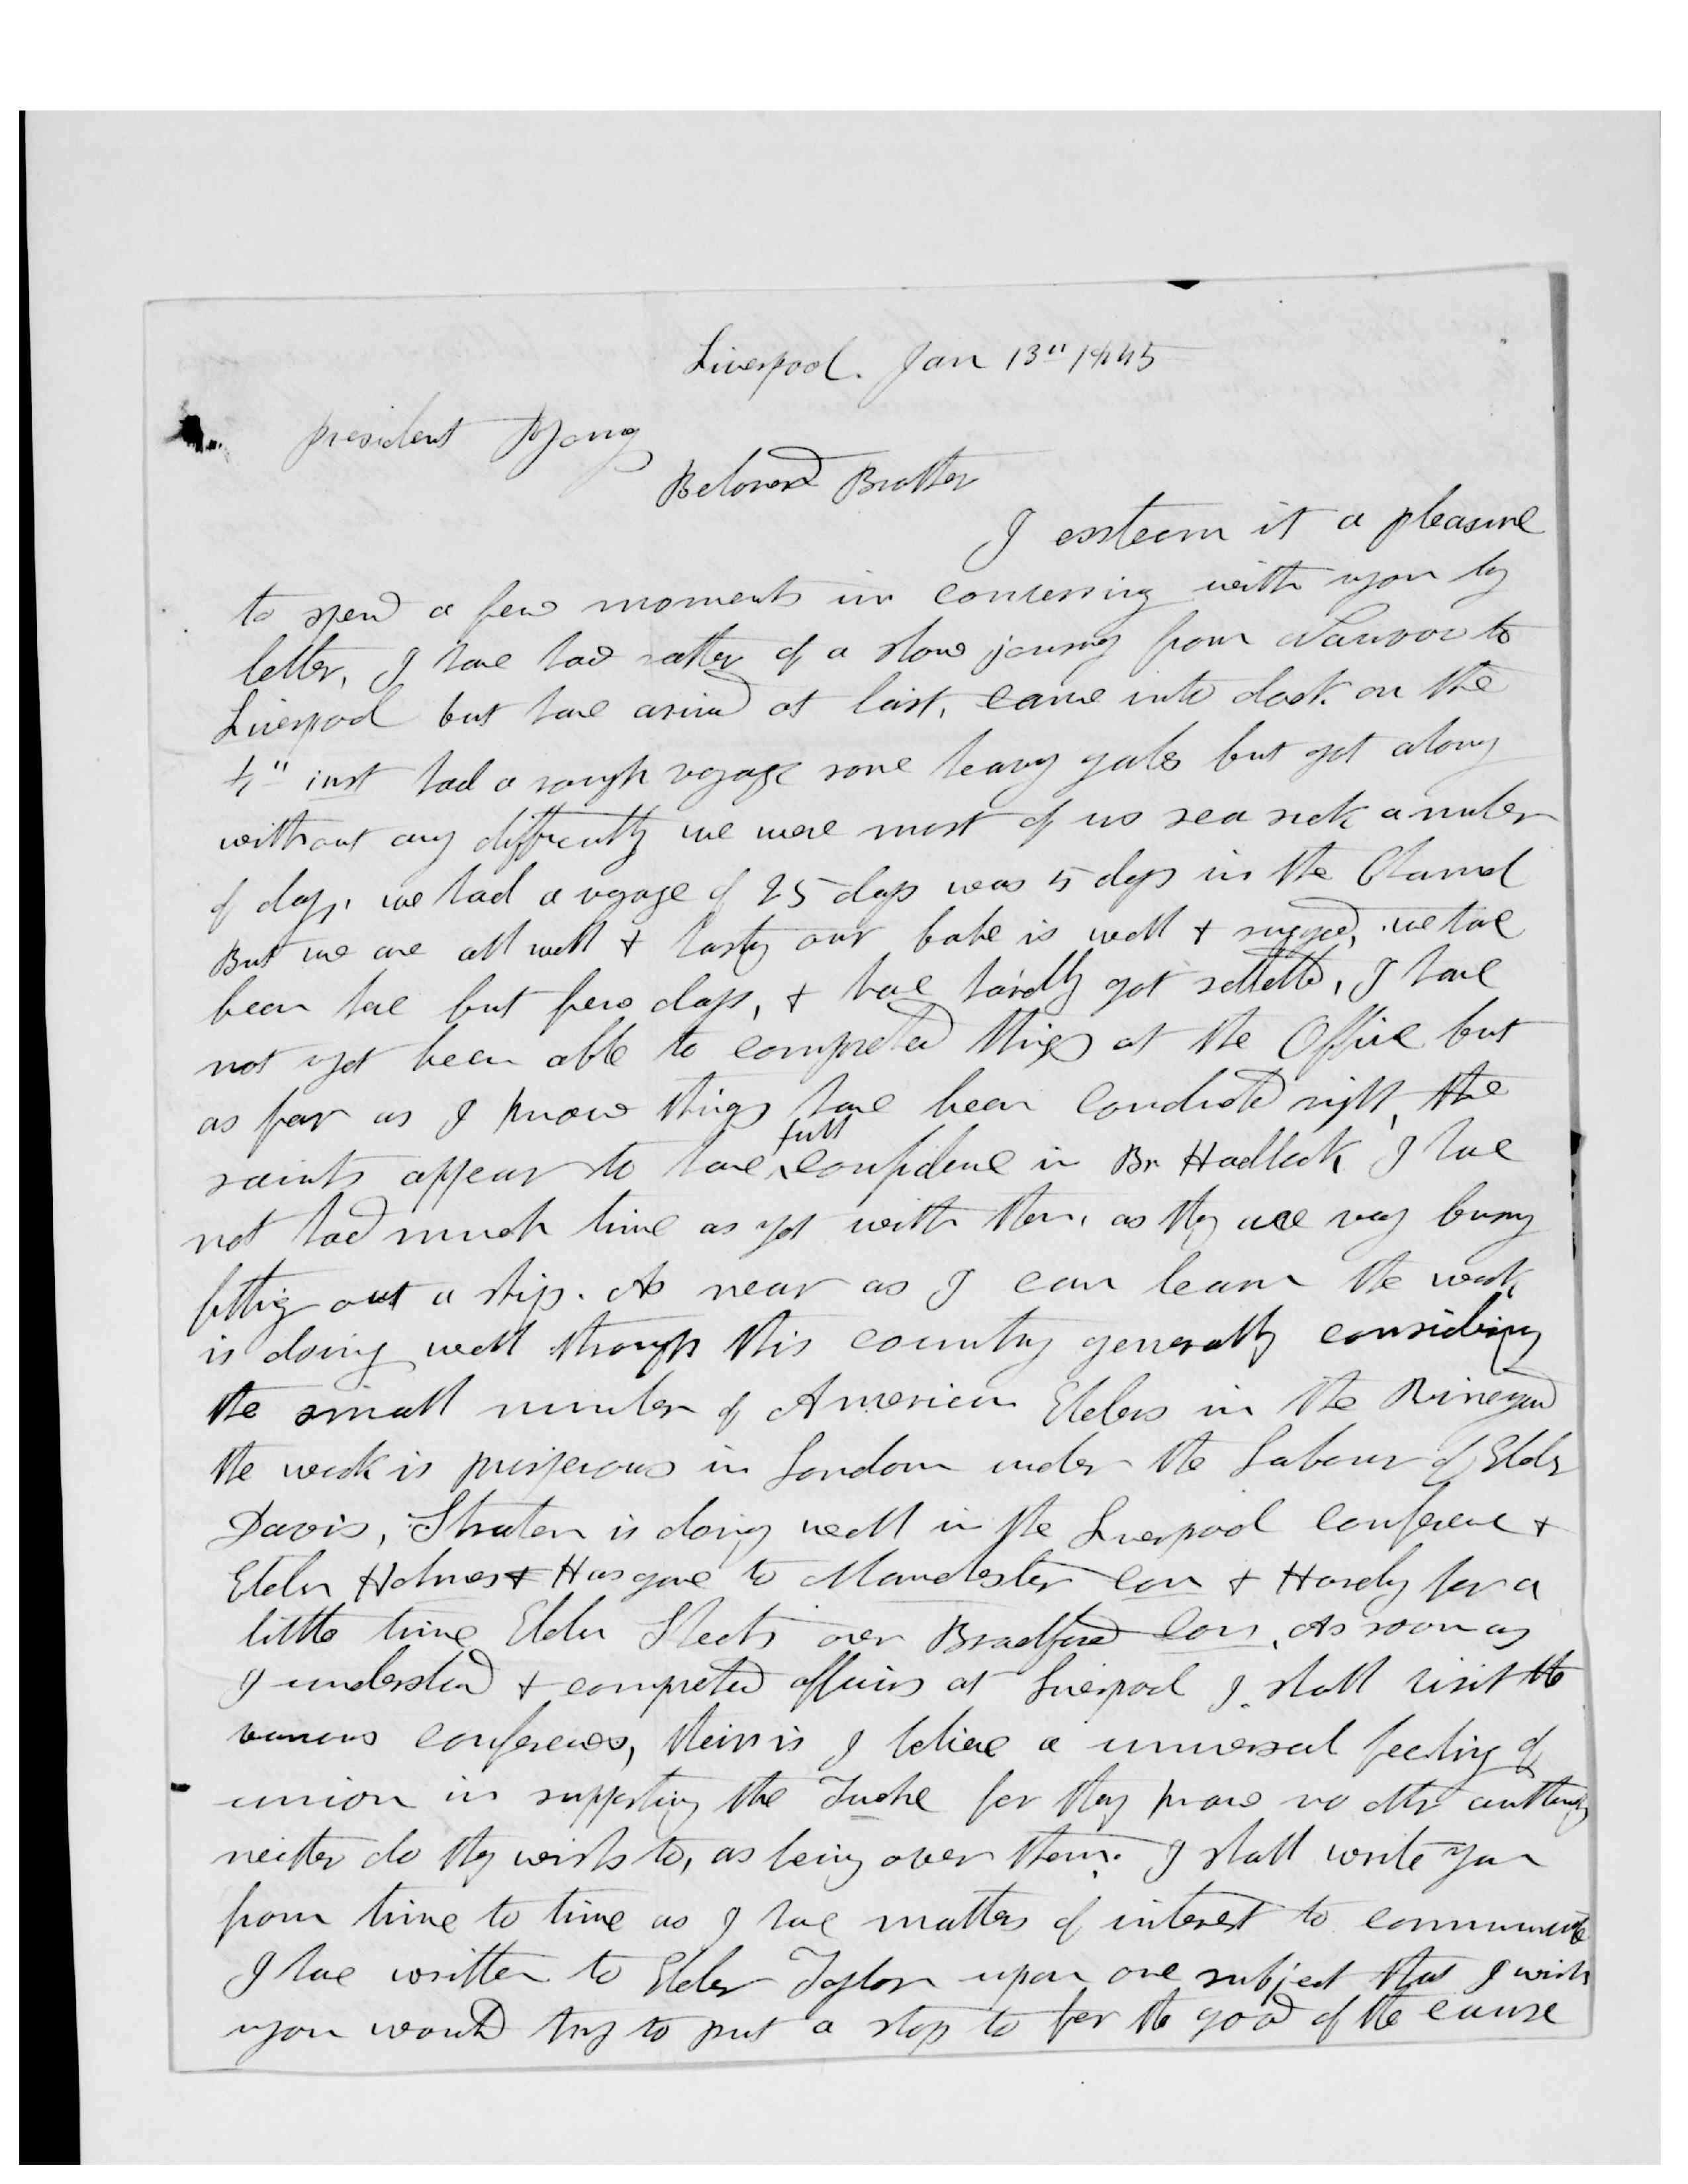 Liverpool. Jan 13" 1845
President B Young
Beloved Brother
I essteem it a pleasure
to spend a few moments in conversing with you by
letter, I have had rather of a slow journey from Nauvoo to
Liverpool but have arived at last, came into dock on the
4" inst had a rough voyage some heavy gales but got along
without any difficulty we were most of us sea sick a number
of days. we had a voyage of 25 days was 5 days in the Channel
But we are all well & hearty our babe is well & rugged, we have
been here but few days, & have hardly got settled, I have
not yet been able to compreted things at the Office but
as far as I know things have been conducted right, the
saints appear to have full confidence in Br Hedlock I have
not had much time as yet with them, as they are very busy
fitting out a ship. As near as I can learn the work
is doing well through this country generally considering
the small number of American Elders in the Vineyard
the work is prosperous in London under the Labour of Elder
Davis, Stratton is doing well in the Liverpool conference &
Elder Holmes & Has gone to Manchester con & Hardy for a
little time Elder Sheets over Bradford con, As soon as
I understand & compreted affairs at Liverpool I shall visit the
various conferences, their is I believe a universal feeling of
union in supporting the Twelve for they know no other authority
neither do they wish to, as being over them. I shall write you
from time to time as I have matters of interest to communicate
I have written to Elder Taylor upon one subject that I wish
you would try to put a stop to for the good of the cause